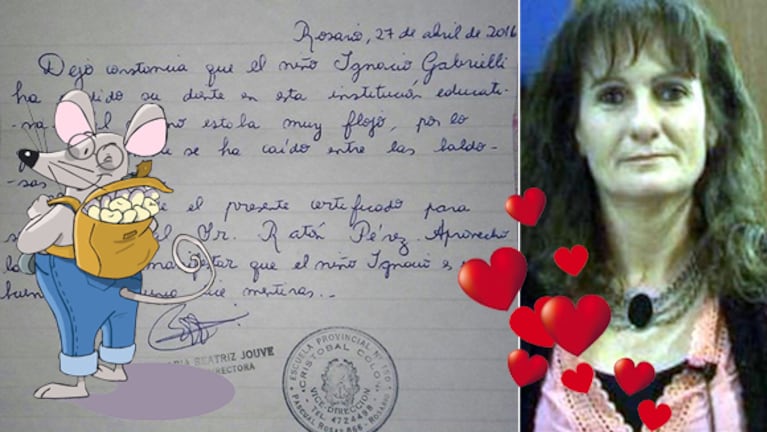 Rosario, 27 de abril de 2016
Dejo constancia que el niño Ignacio Gabrielli
ha su diente en esta institución educati-
-va. estaba muy flojo, por lo
se ha caído entre las baldo-
-sas
el presente certificado para
Sr. Ratón Pérez. Aprovecho
la manifestar que el niño Ignacio es
buen dice mentiras.-
BEATRIZ JOUVE
DIRECTORA
ESCUELA PROVINCIAL Nº
CRISTOBAL COLON
VICE-DIRECCION
TEL. 4724498
PASCUAL ROSAS 866 - ROSARIO